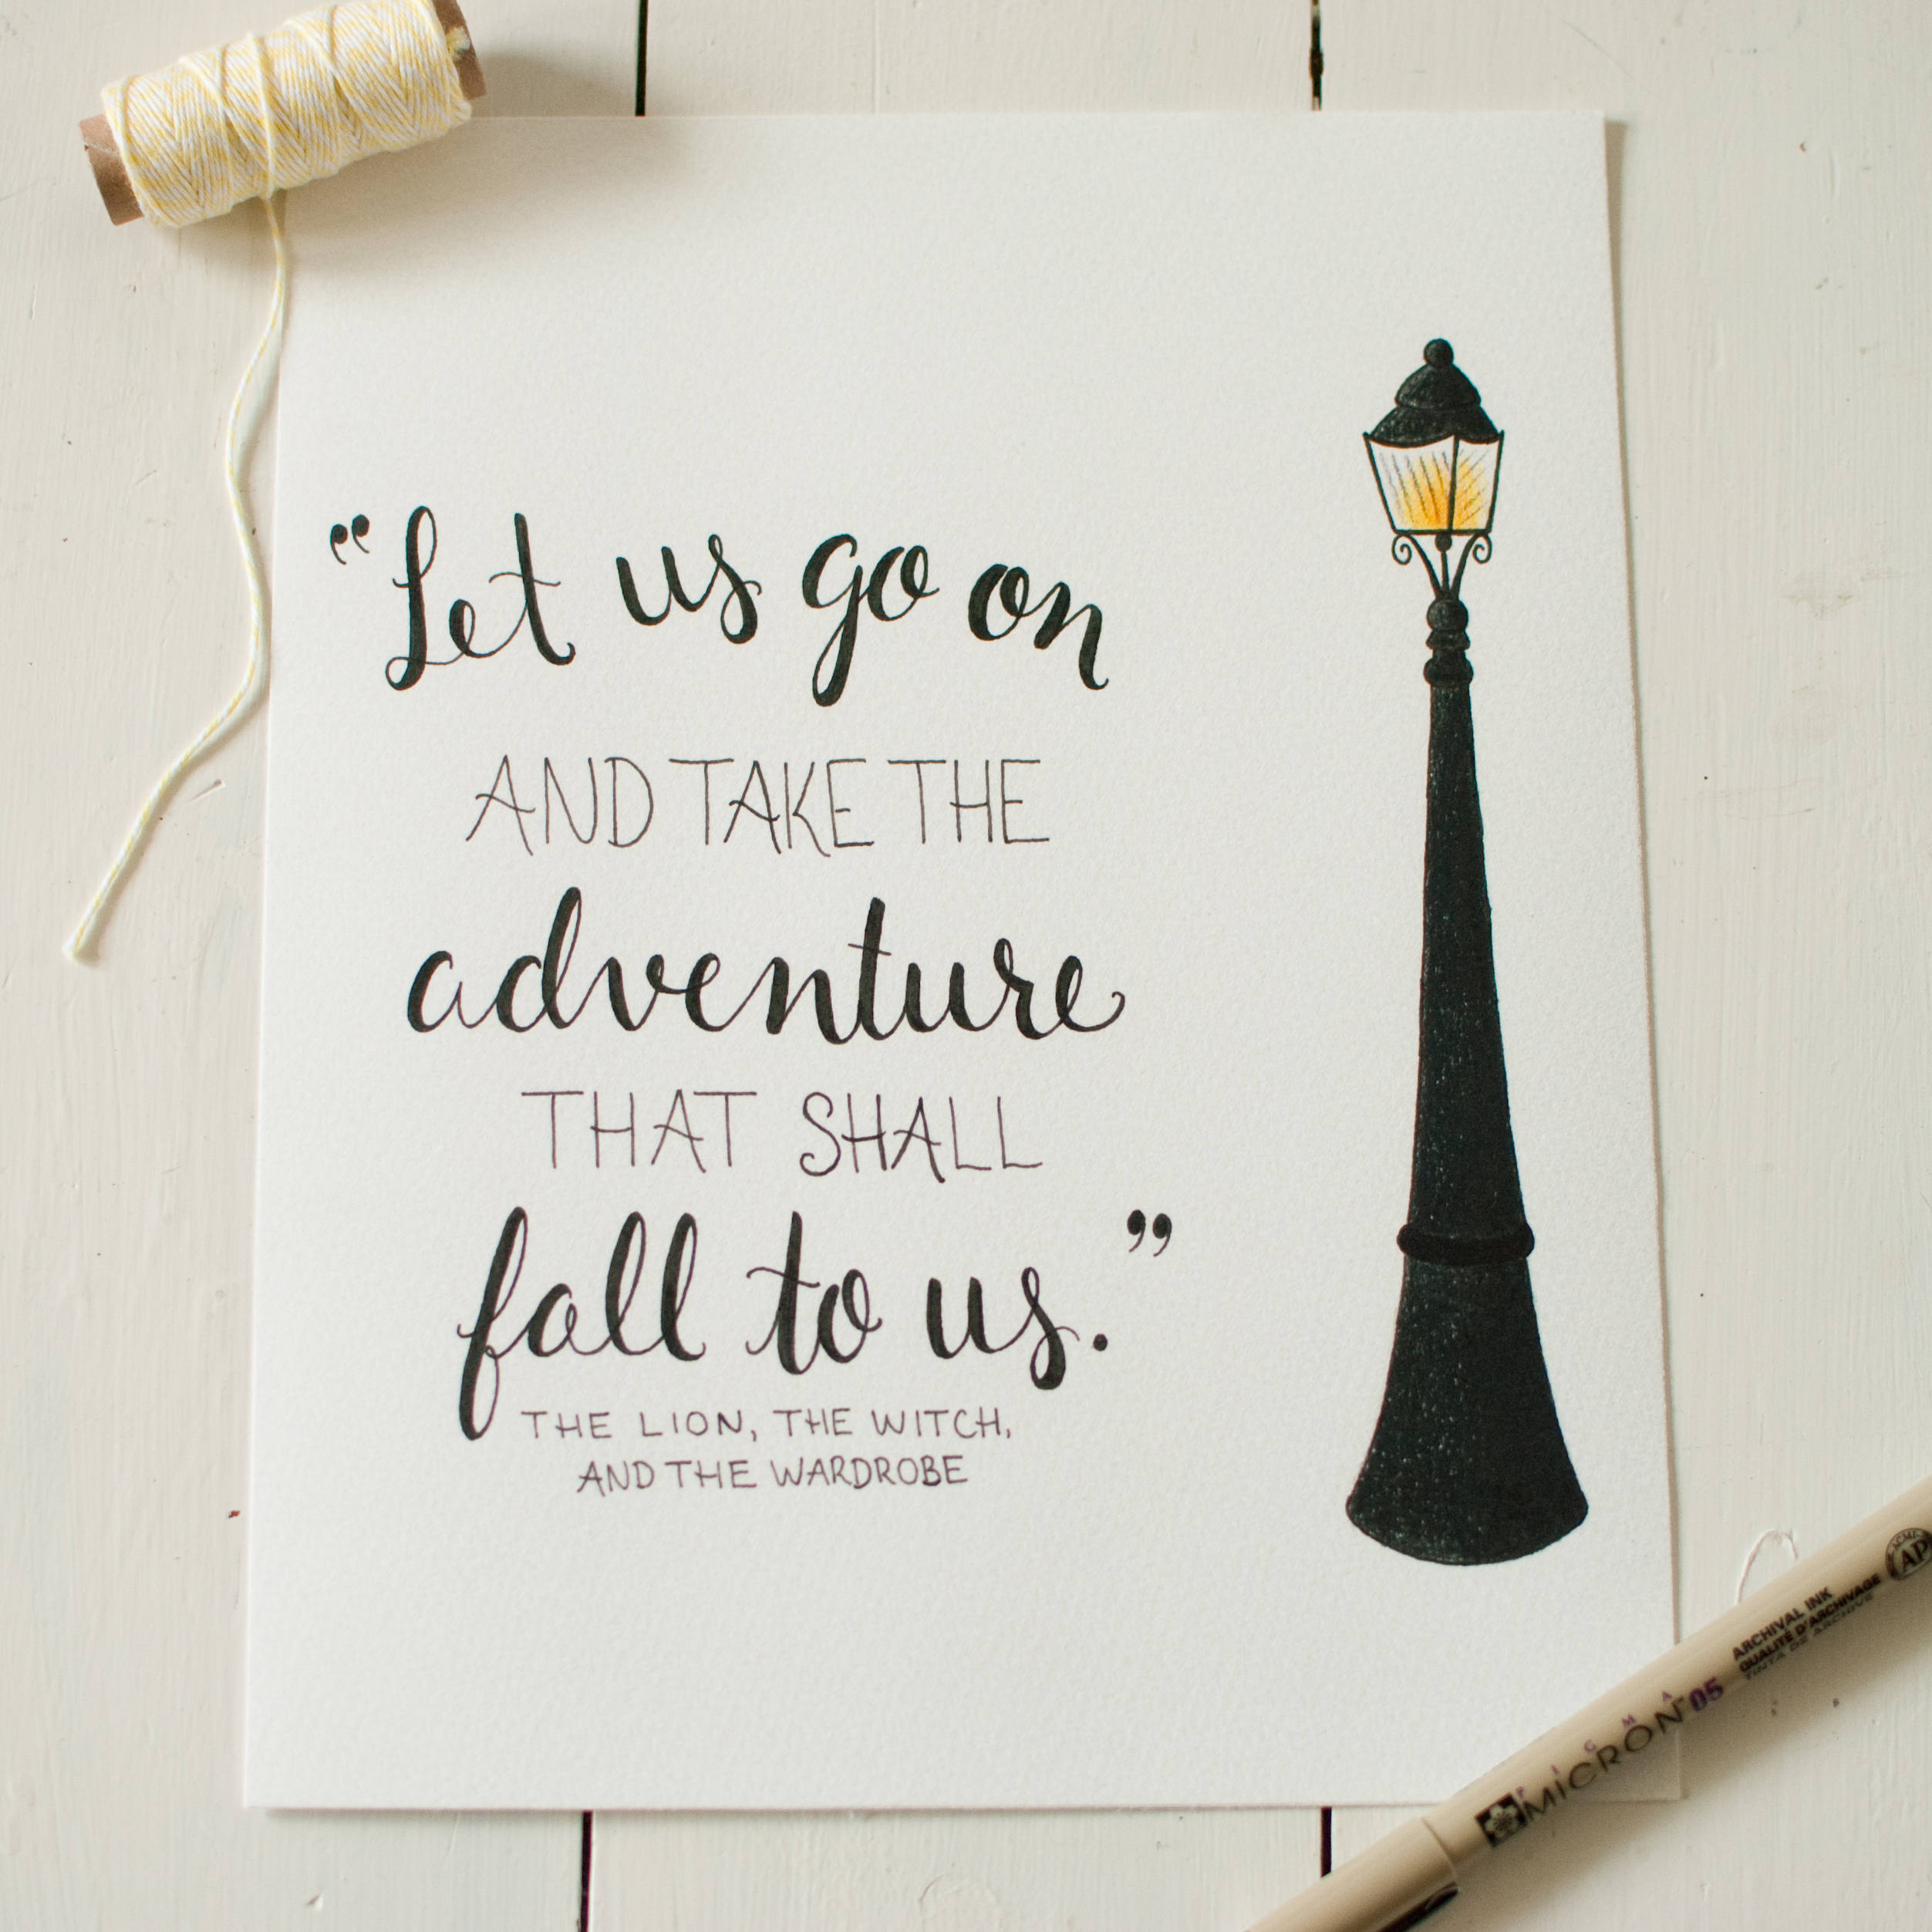 “Let us go on
AND TAKE THE
adventure
THAT SHALL
fall to us.”
THE LION, THE WITCH,
AND THE WARDROBE
PIGMA
MICRON 05
ARCHIVAL INK
QUALITÉ D'ARCHIVAGE
TINTA DE ARCHIVE
ACMI
AP